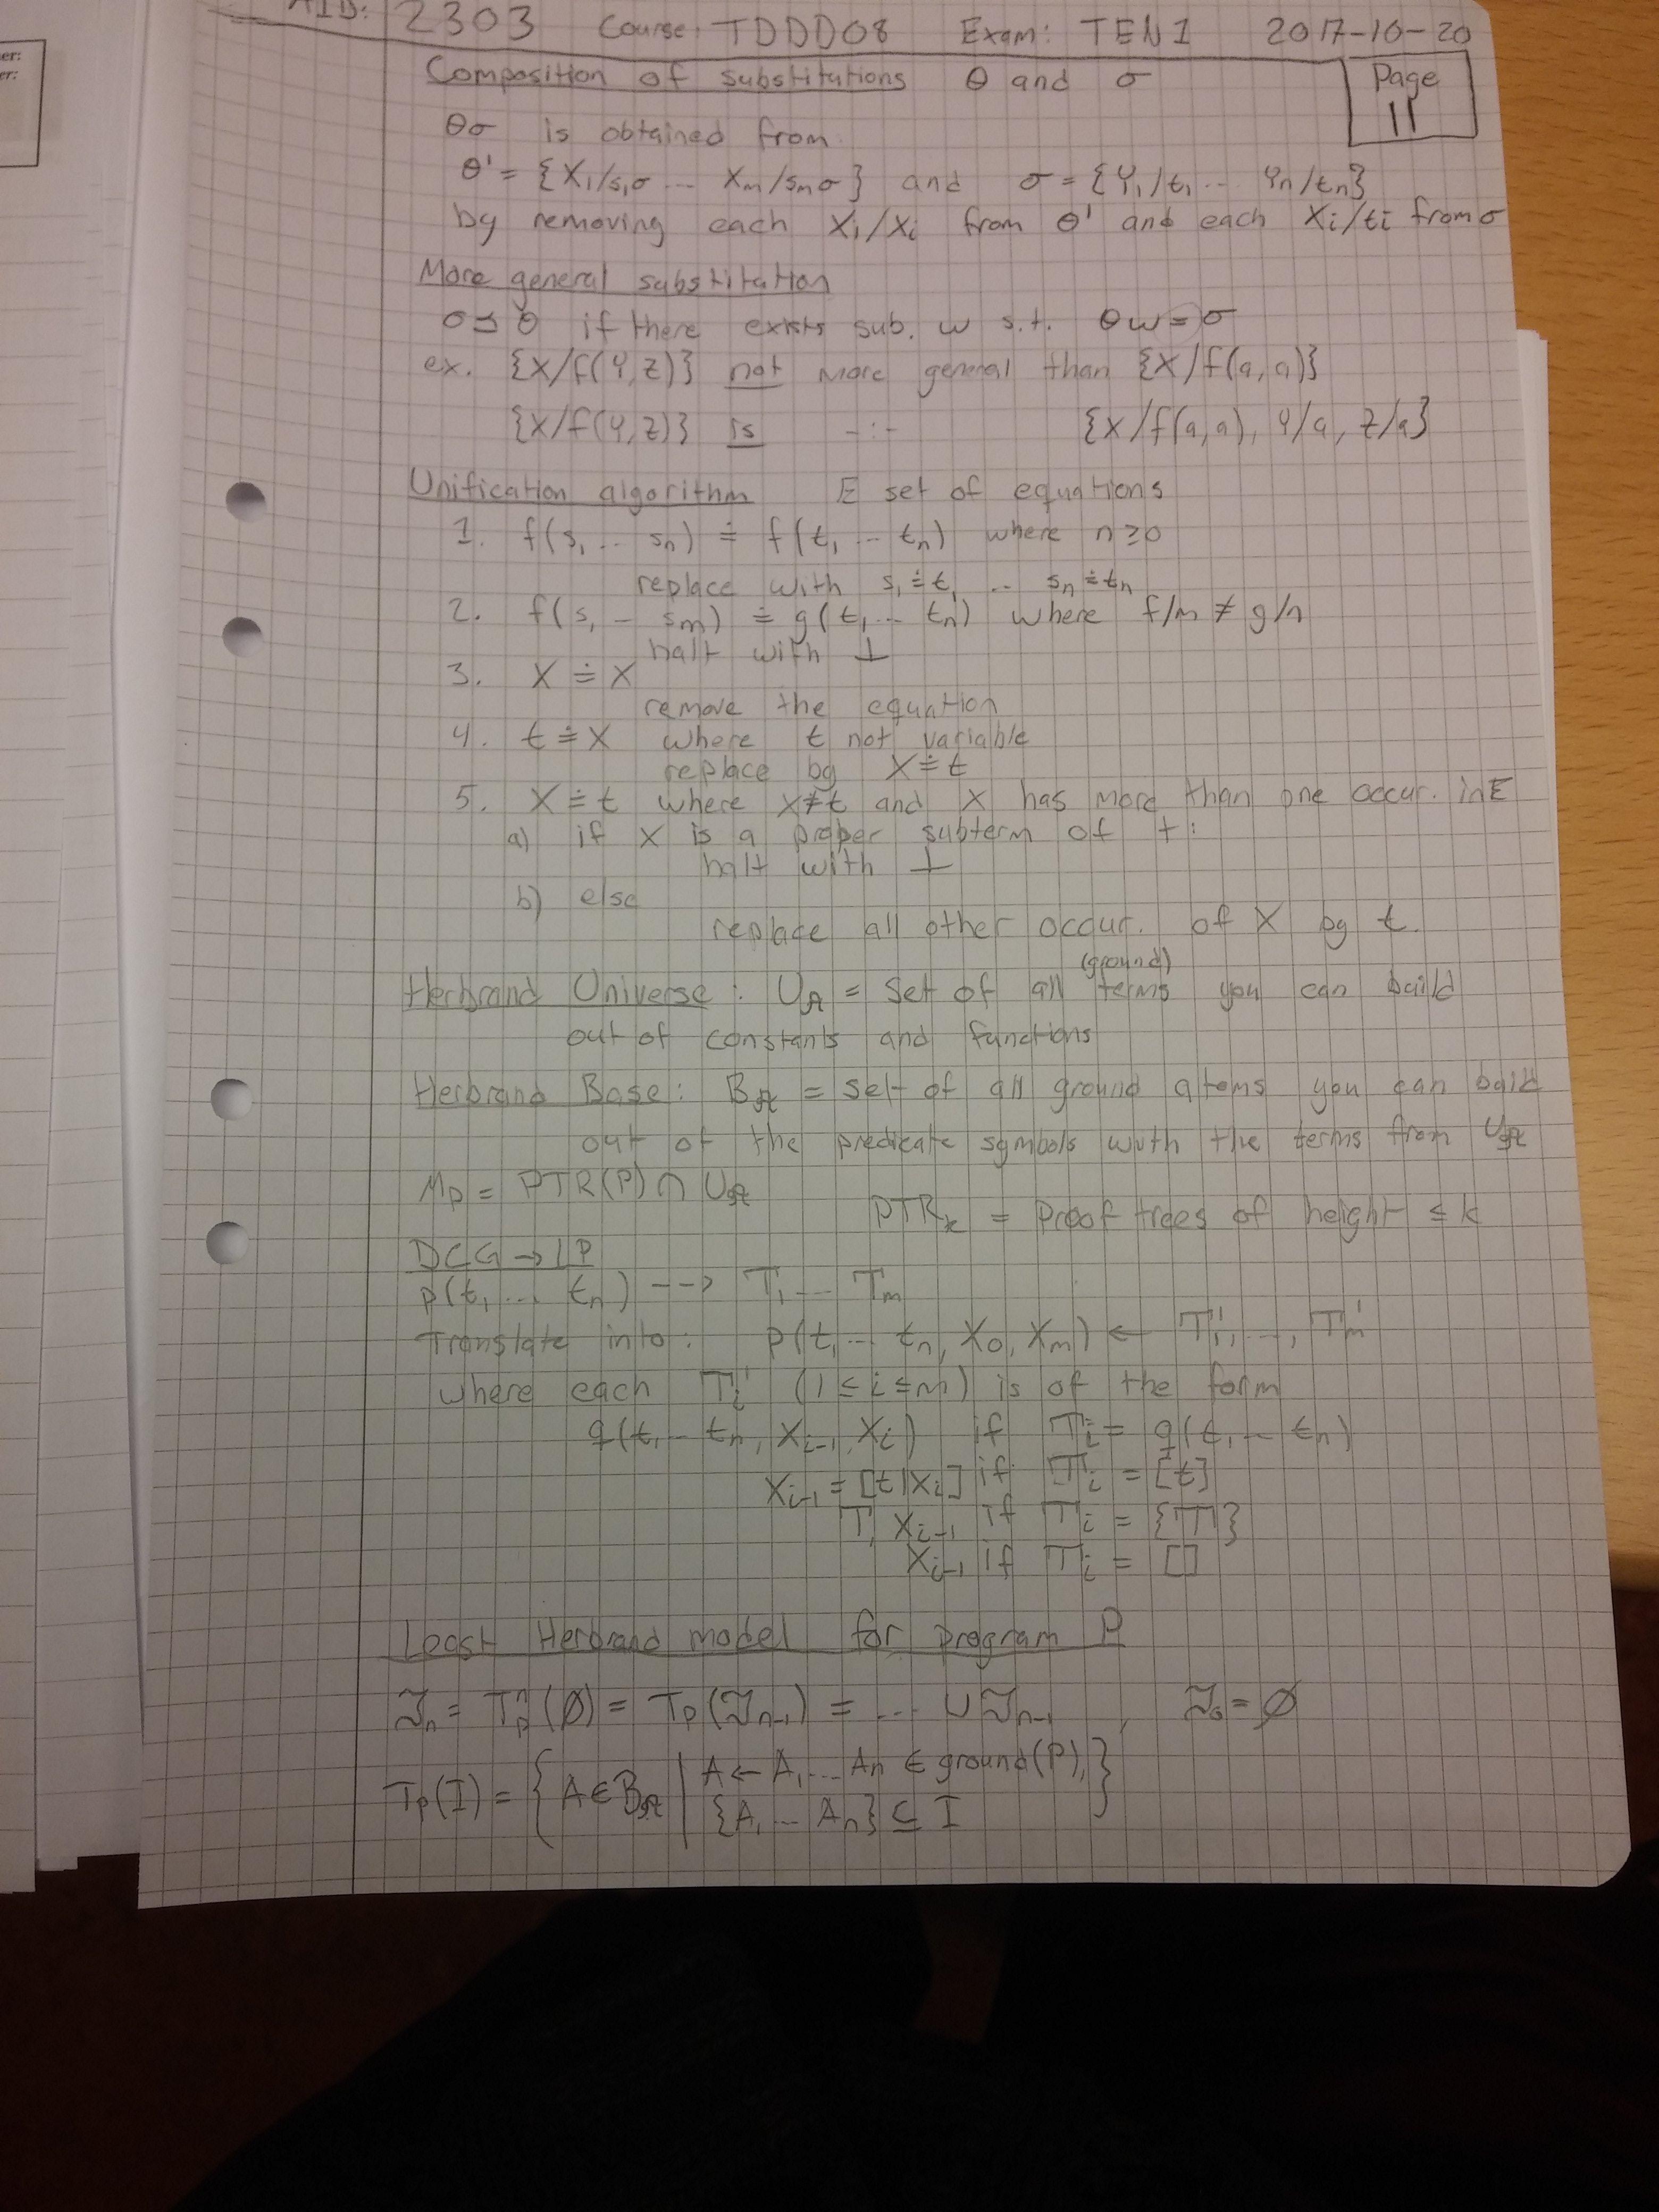 AID: 2303 Course: TDDD08 Exam: TEN1 2017-10-20
Page 11
er:
er:
Composition of substitutions θ and σ
θσ is obtained from
θ' = {X₁/s₁σ ... Xm/smσ} and σ = {Y₁/t₁ ... Yn/tn}
by removing each Xi/Xi from θ' and each Xi/ti from σ
More general substitution
σ ⪯ θ if there exists sub. w s.t. θw = σ
ex. {X/f(Y,Z)} not more general than {X/f(a,a)}
{X/f(Y,Z)} is -:- {X/f(a,a), Y/a, Z/a}
Unification algorithm E set of equations
1. f(s₁ ... sn) ≐ f(t₁ ... tn) where n ≥ 0
replace with s₁ ≐ t₁ ... sn ≐ tn
2. f(s₁ ... sm) ≐ g(t₁ ... tn) where f/m ≠ g/n
halt with ⊥
3. X ≐ X
remove the equation
4. t ≐ X where t not variable
replace by X ≐ t
5. X ≐ t where X ≠ t and X has more than one occur. in E
a) if X is a proper subterm of t:
halt with ⊥
b) else
replace all other occur. of X by t.
Herbrand Universe: U𝒜 = set of all (ground) terms you can build
out of constants and functions
Herbrand Base: B𝒜 = set of all ground atoms you can build
out of the predicate symbols with the terms from U𝒜
Mp = PTR(P) ∩ U𝒜
PTRk = Proof trees of height ≤ k
DCG → LP
p(t₁ ... tn) --> T₁ ... Tm
Translate into: p(t₁ ... tn, X₀, Xm) ← T₁', ..., Tm'
where each Ti' (1 ≤ i ≤ m) is of the form
q(t₁ ... tn, Xi-1, Xi) if Ti = q(t₁ ... tn)
Xi-1 = [t|Xi] if Ti = [t]
T, Xi-1 if Ti = {T}
Xi-1 if Ti = []
Least Herbrand model for program P
ℑn = Tpⁿ(∅) = Tp(ℑn-1) = ... ∪ ℑn-1, ℑ₀ = ∅
Tp(I) = {A ∈ B𝒜 | A ← A₁ ... An ∈ ground(P), {A₁ ... An} ⊆ I}